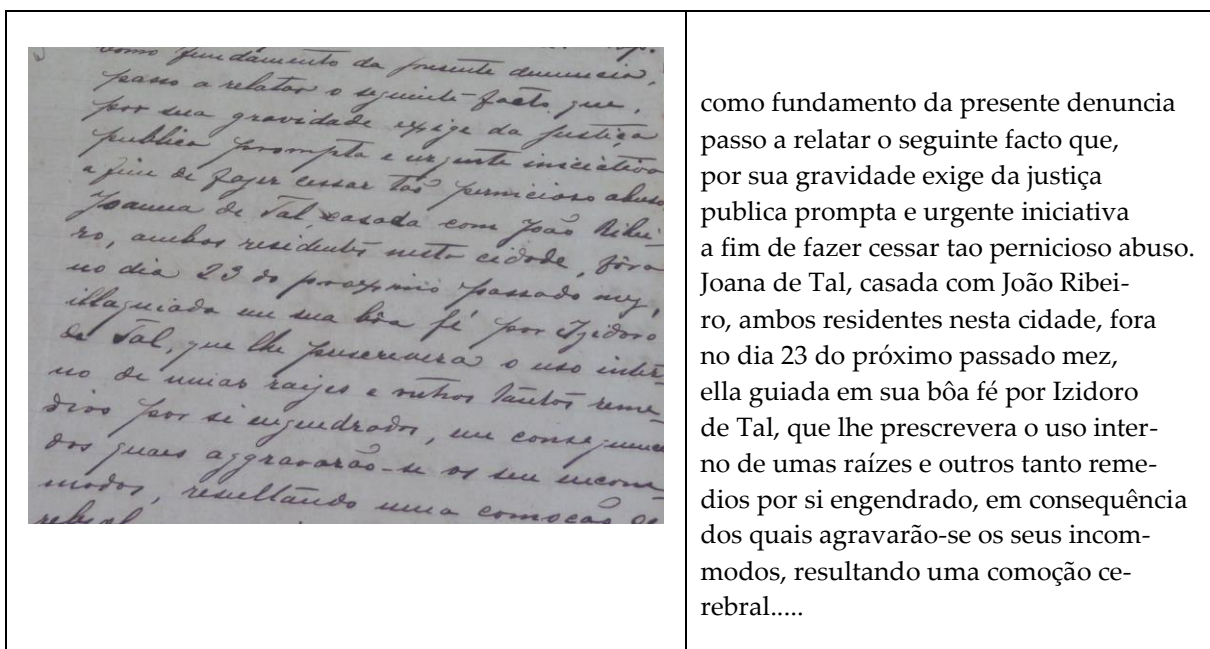 como fundamento da presente denuncia,
passo a relatar o seguinte facto que,
por sua gravidade exige da justiça
publica prompta e urgente iniciativa
a fim de fazer cessar tao pernicioso abuso
Joanna de Tal, casada com João Ribei-
ro, ambos residentes nesta cidade, fôra
no dia 23 do proximo passado mez,
illaquiada em sua bôa fé por Izidoro
de Tal, que lhe prescrevera o uso inter-
no de umas raizes e outros tantos reme-
dios por si engendrados, em consequenc
dos quais aggravarão-se os seu incom-
modos, resultando uma comoção ce
rebral
como fundamento da presente denuncia
passo a relatar o seguinte facto que,
por sua gravidade exige da justiça
publica prompta e urgente iniciativa
a fim de fazer cessar tao pernicioso abuso.
Joana de Tal, casada com João Ribei-
ro, ambos residentes nesta cidade, fora
no dia 23 do próximo passado mez,
ella guiada em sua bôa fé por Izidoro
de Tal, que lhe prescrevera o uso inter-
no de umas raízes e outros tanto reme-
dios por si engendrado, em consequência
dos quais agravarão-se os seus incom-
modos, resultando uma comoção ce-
rebral.....